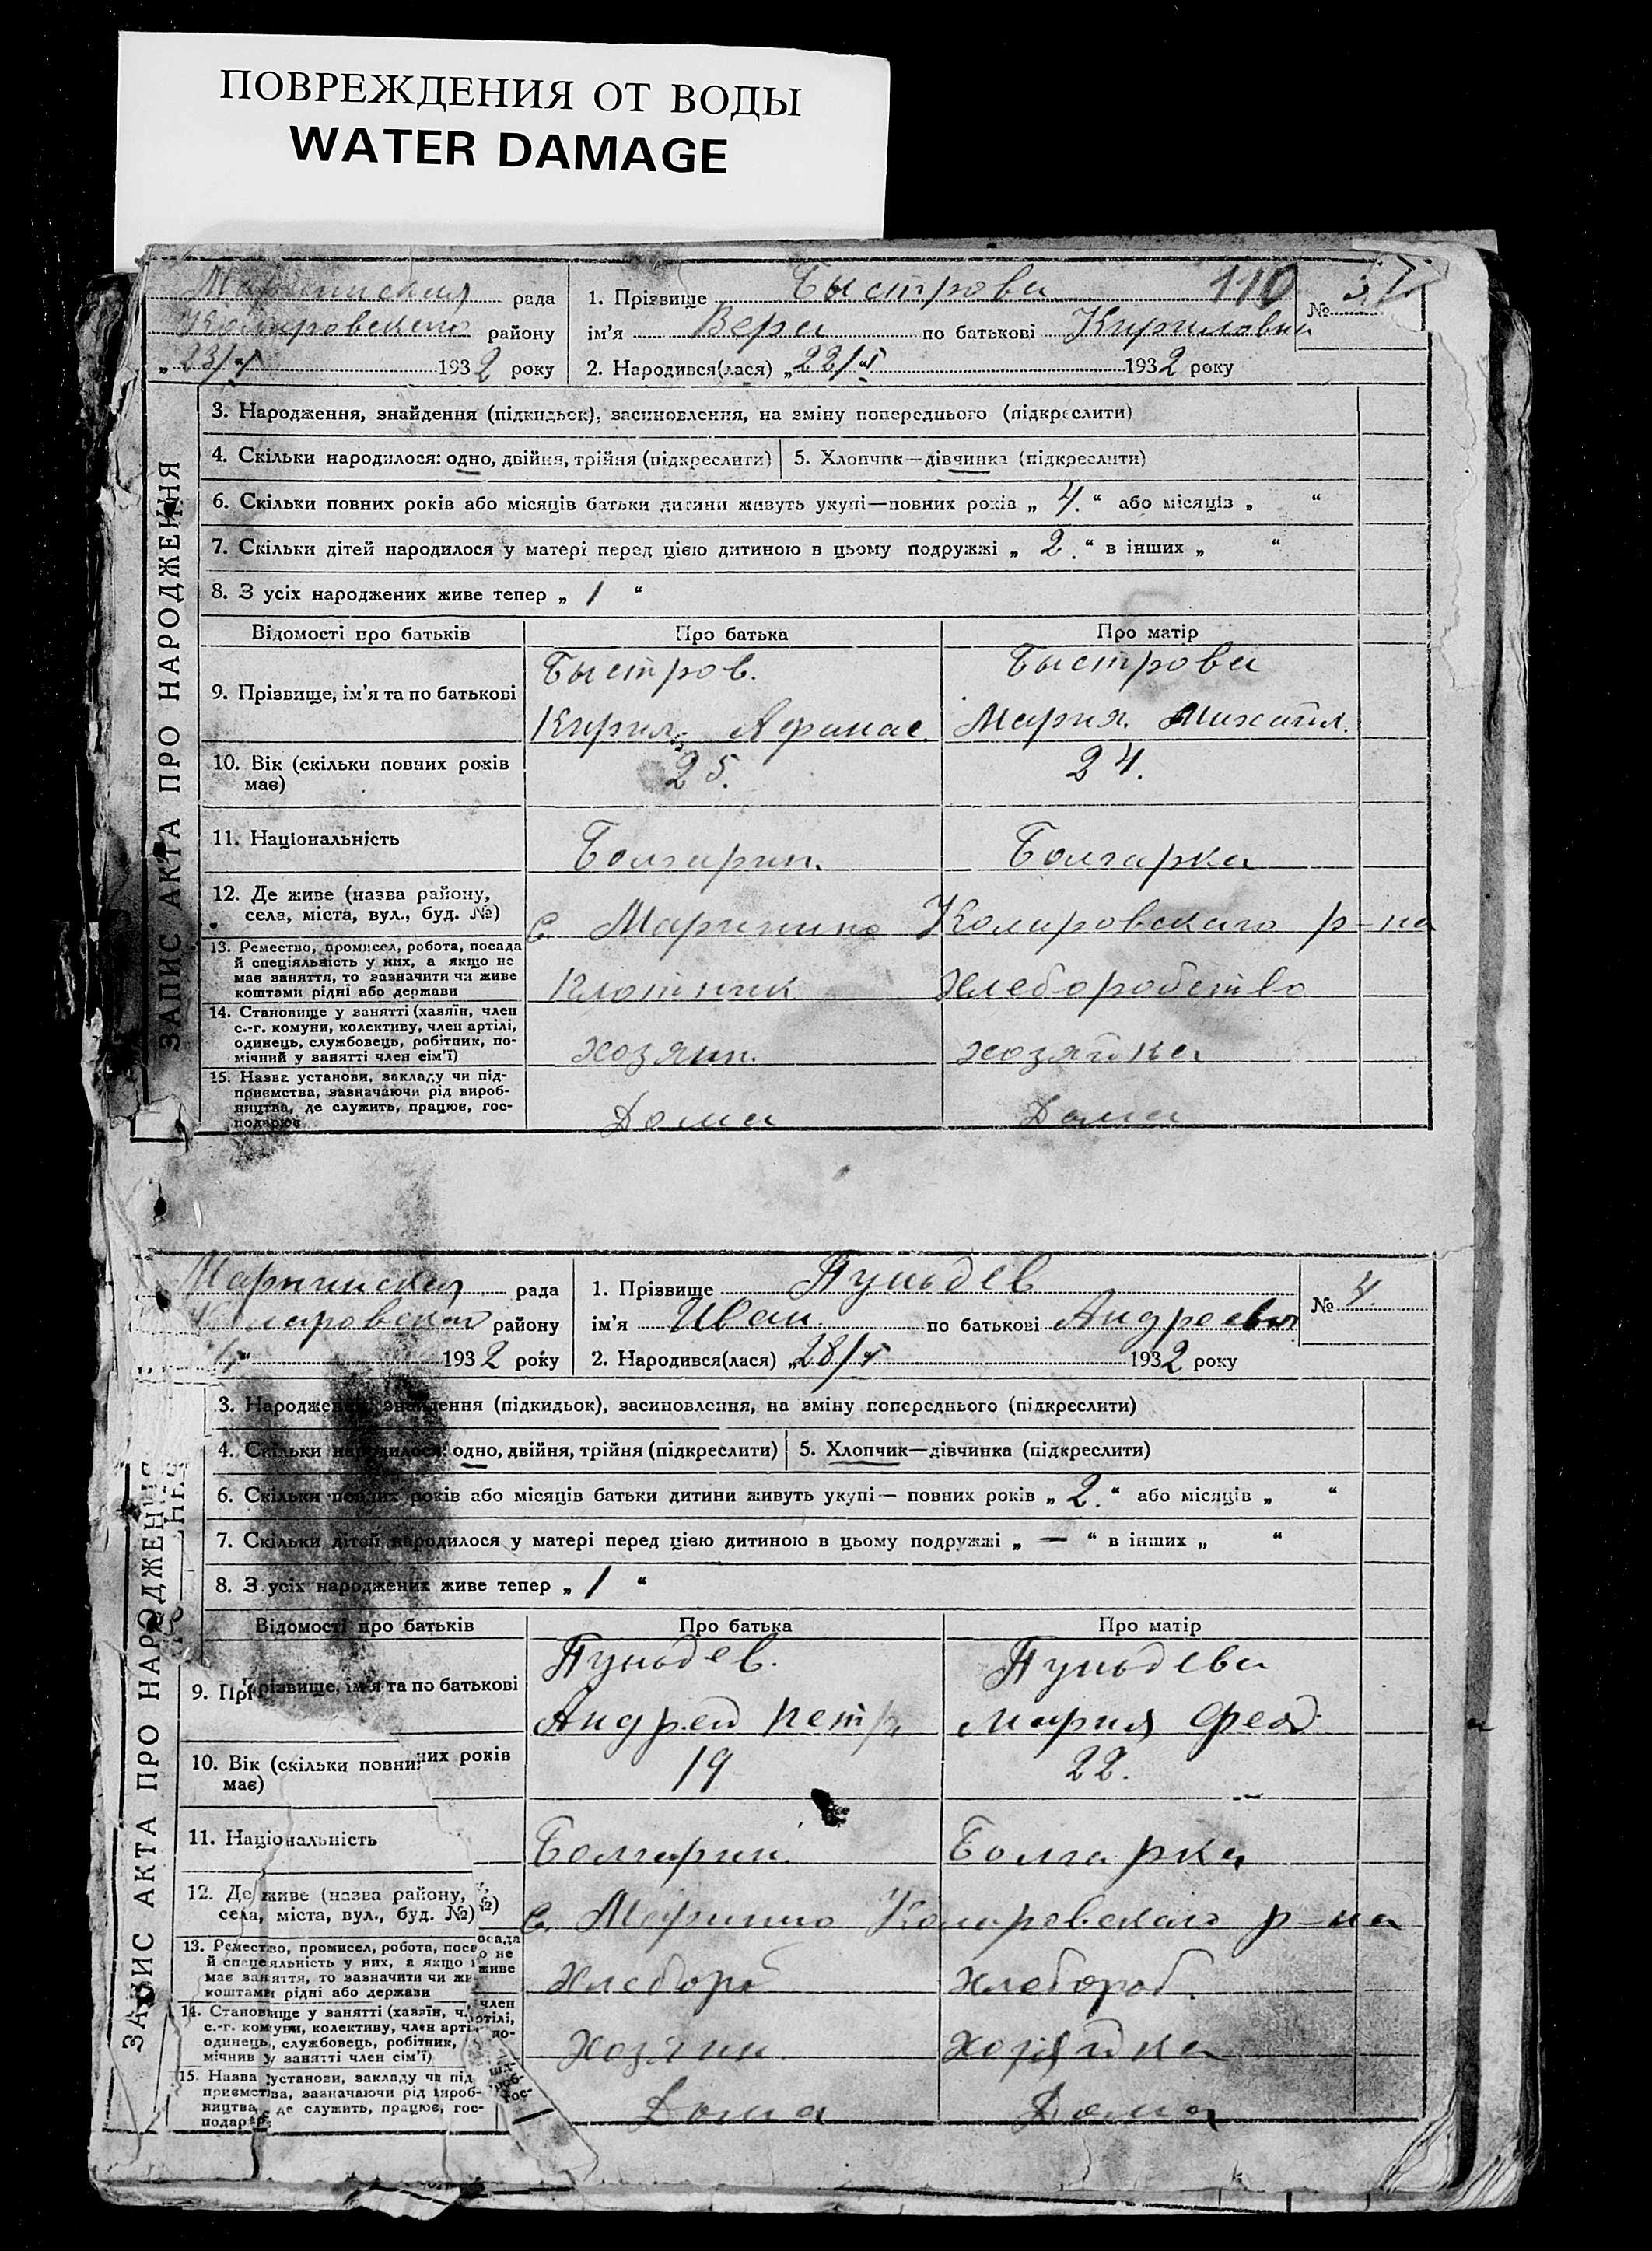 ПОВРЕЖДЕНИЯ ОТ ВОДЫ
WATER DAMAGE
рада 1. Прізвище Быстрова 110 № 3
району ім'я Вера по батькові Кириловна
„ 23/ 1932 року 2. Народився(лася) „22/ 1932 року
ЗАПИС АКТА ПРО НАРОДЖЕННЯ
3. Народження, знайдення (підкидьок), засиновлення, на зміну попереднього (підкреслити)
4. Скільки народилося: одно, двійня, трійня (підкреслити) 5. Хлопчик—дівчинка (підкреслити)
6. Скільки повних років або місяців батьки дитини живуть укупі—повних років „ 4. “ або місяців „ “
7. Скільки дітей народилося у матері перед цією дитиною в цьому подружжі „ 2. “ в інших „ “
8. З усіх народжених живе тепер „ 1 “
Відомості про батьків Про батька Про матір
Быстров. Быстрова
9. Прізвище, ім'я та по батькові
Кирил. Афанас. Мария Михайл.
10. Вік (скільки повних років 25. 24.
має)
11. Національність Болгарин. Болгарка
12. Де живе (назва району,
села, міста, вул., буд. №) с. Маринино Коларовскаго р-на
13. Ремество, промисел, робота, посада
й спеціяльність у них, а якщо не
має заняття, то зазначити чи живе
коштами рідні або держави Плотник Хлеборобство
14. Становище у занятті (хазяїн, член
с.-г. комуни, колективу, член артілі,
одинець, службовець, робітник, по-
мічний у занятті член сім'ї) хозяин. хозяйка
15. Назва установи, закладу чи під-
приємства, зазначаючи рід вироб-
ництва, де служить, працює, гос-
подарює Дома Дома
Марининская рада 1. Прізвище Пульдев № 4.
району ім'я Иван по батькові Андреевич
1932 року 2. Народився(лася) „28/ 1932 року
ЗАПИС АКТА ПРО НАРОДЖЕННЯ
3. Народження, знайдення (підкидьок), засиновлення, на зміну попереднього (підкреслити)
4. Скільки народилося: одно, двійня, трійня (підкреслити) 5. Хлопчик—дівчинка (підкреслити)
6. Скільки повних років або місяців батьки дитини живуть укупі— повних років „ 2. “ або місяців „ “
7. Скільки дітей народилося у матері перед цією дитиною в цьому подружжі „ — “ в інших „ “
8. З усіх народжених живе тепер „ 1 “
Відомості про батьків Про батька Про матір
Пульдев. Пульдева
9. Прізвище, ім'я та по батькові
Андрей Петр. Мария Феод.
10. Вік (скільки повних років 19 22.
має)
11. Національність Болгарин. Болгарка
12. Де живе (назва району,
села, міста, вул., буд. №) с. Маринино Коларовскаго р-на
13. Ремество, промисел, робота, посада
й спеціяльність у них, а якщо не
має заняття, то зазначити чи живе
коштами рідні або держави Хлебороб Хлебороб.
14. Становище у занятті (хазяїн, член
с.-г. комуни, колективу, член артілі,
одинець, службовець, робітник, по-
мічний у занятті член сім'ї) Хозяин хозяйка
15. Назва установи, закладу чи під-
приємства, зазначаючи рід вироб-
ництва, де служить, працює, гос-
подарює Дома Дома